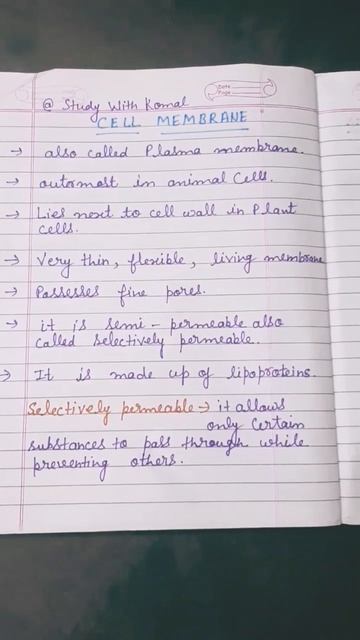 Date
Page
@ Study With Komal
CELL MEMBRANE
→ also called Plasma membrane.
→ outermost in animal cells.
→ Lies next to cell wall in Plant
cells.
→ Very thin, flexible, living membrane
→ Possesses fine pores.
→ it is semi-permeable also
called selectively permeable.
→ It is made up of lipoproteins.
Selectively permeable → it allows
only certain
substances to pass through while
preventing others.